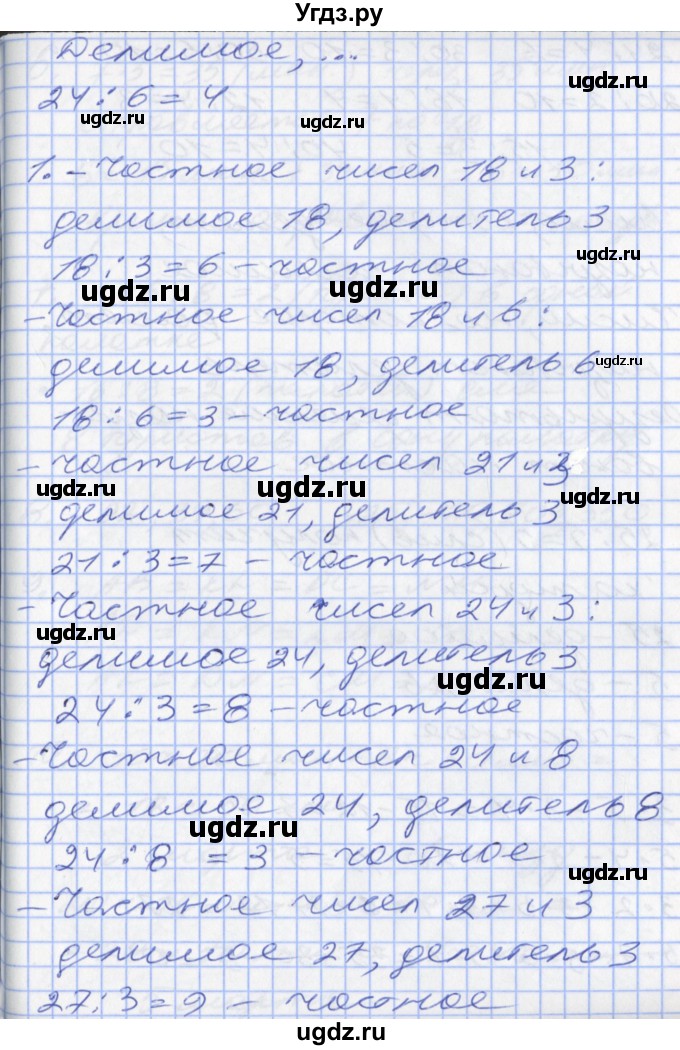 Угдз.ру
Делимое, ...
ugdz.ru
24 : 6 = 4
ugdz.ru ugdz.ru
1. - Частное чисел 18 и 3 :
делимое 18, делитель 3
ugdz.ru
18 : 3 = 6 - частное
ugdz.ru ugdz.ru
- Частное чисел 18 и 6 :
делимое 18, делитель 6
ugdz.ru
18 : 6 = 3 - частное
- частное чисел 21 и 3
ugdz.ru ugdz.ru ugdz.ru
делимое 21, делитель 3
21 : 3 = 7 - частное
- Частное чисел 24 и 3 :
ugdz.ru
делимое 24, делитель 3
ugdz.ru
24 : 3 = 8 - частное
- Частное чисел 24 и 8
делимое 24, делитель 8
ugdz.ru
24 : 8 = 3 - частное
ugdz.ru
- Частное чисел 27 и 3
делимое 27, делитель 3
27 : 3 = 9 - частное
ugdz.ru